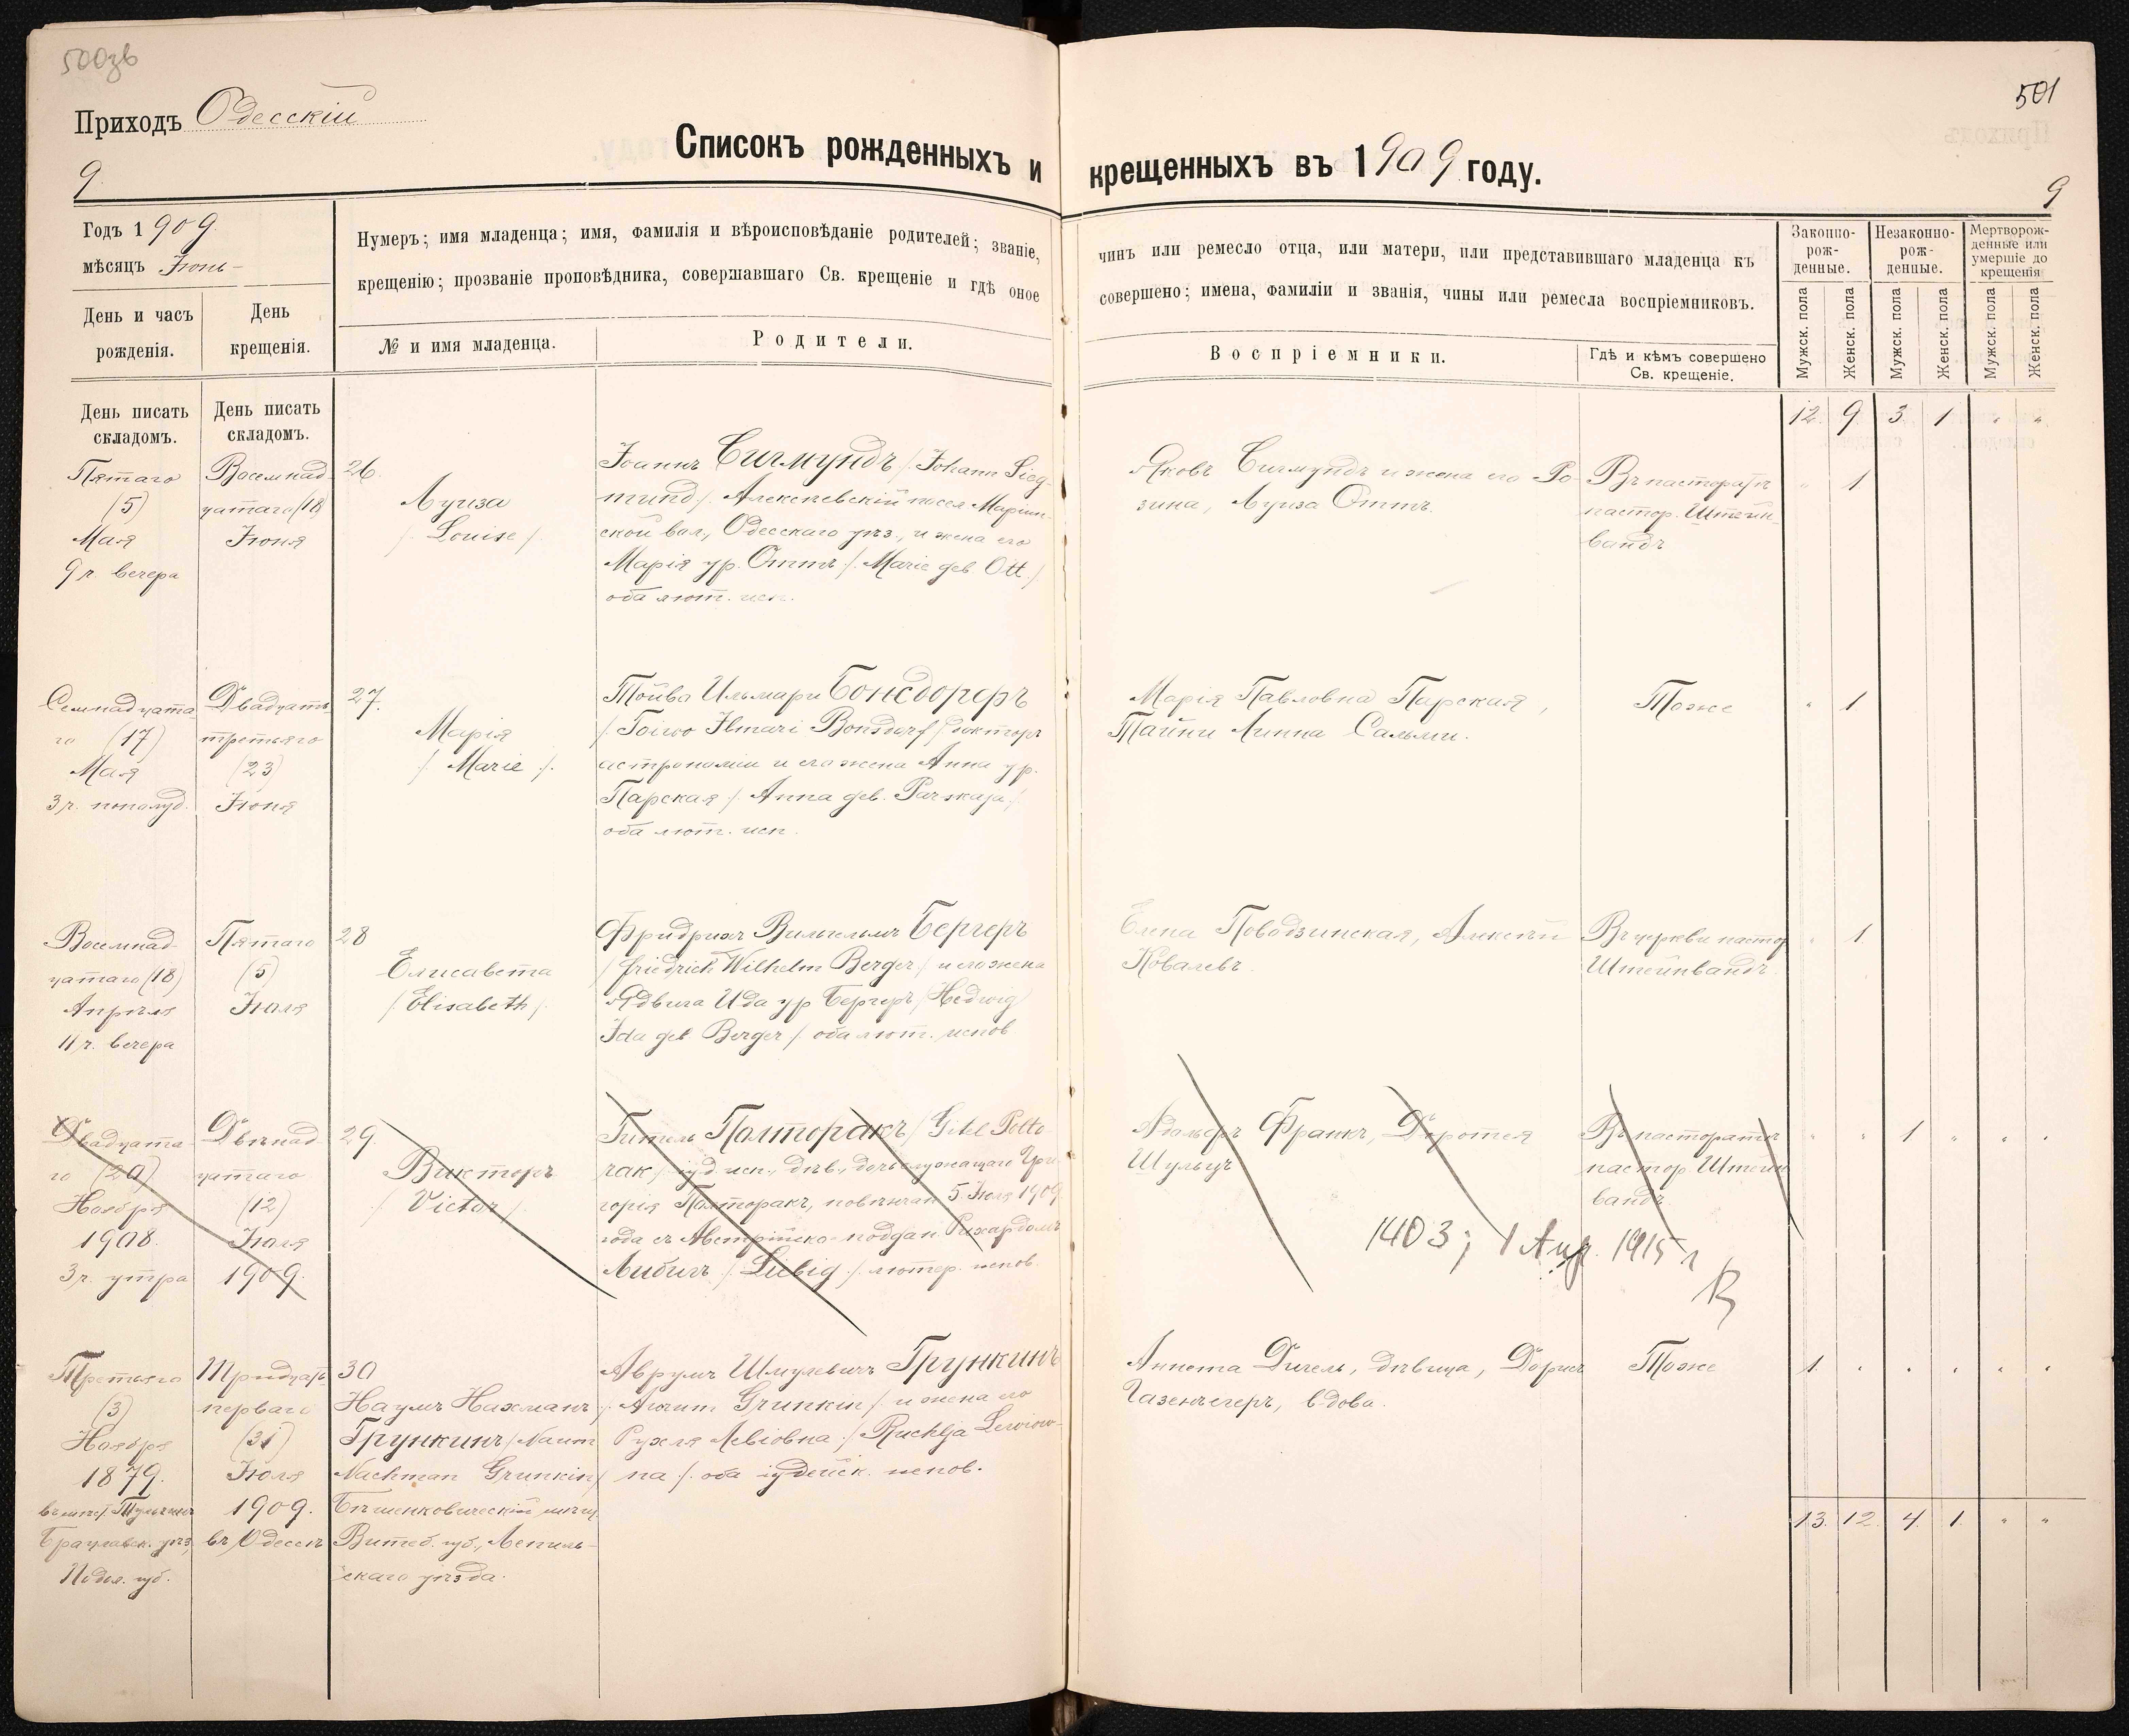 500зв
501
Приходъ Одесскій
Списокъ рожденныхъ и крещенныхъ въ 1909 году.
9
9
Годъ 1909
мѣсяцъ Іюнь-
Нумеръ; имя младенца; имя, фамилія и вѣроисповѣданіе родителей; званіе,
чинъ или ремесло отца, или матери, или представившаго младенца къ
крещенію; прозваніе проповѣдника, совершавшаго Св. крещеніе и гдѣ оное
совершено; имена, фамиліи и званія, чины или ремесла воспріемниковъ.
Законно-
рож-
денные.
Незаконно-
рож-
денные.
Мертворож-
денные или
умершіе до
крещенія
День и часъ
рожденія.
День
крещенія.
№ и имя младенца.
Родители.
Воспріемники.
Гдѣ и кѣмъ совершено
Св. крещеніе.
Мужск. пола
Женск. пола
Мужск. пола
Женск. пола
Мужск. пола
Женск. пола
День писать
складомъ.
День писать
складомъ.
12. 9 3 1 " "
Пятаго
(5)
Мая
9 ч. вечера
Восемнад-
цатаго (18)
Іюня
26.
Луиза
/. Louise /.
Іоаннъ Сигмундъ /. Johann Sieg-
mund /. Алексѣевскій посел. Маріин-
ской вол., Одесскаго уѣз., и жена его
Марія ур. Оттъ /. Marie geb Ott /.
оба лют. исп.
Яковъ Сигмундъ и жена его Ро-
зина, Луиза Оттъ.
Въ пасторатѣ
пастор. Штейн-
вандъ
" 1
Семнадцата-
го (17)
Мая
3 ч. пополуд.
Двадцать
третьяго
(23)
Іюня
27.
Марія
/. Marie /.
Тойво Ильмари Бонсдорфъ
/. Toiwo Ilmari Bonsdorf /. докторъ
астрономіи и его жена Анна ур.
Парская /. Anna geb. Parskaja /.
оба лют. исп.
Марія Павловна Парская,
Тайни Линна Сальми.
Тоже
" 1
Восемнад-
цатаго (18)
Апрѣля
11 ч. вечера
Пятаго
(5)
Іюля
28
Елисавета
/. Elisabeth /.
Фридрихъ Вильгельмъ Бергеръ
/. Friedrich Wilhelm Berger /. и его жена
Ядвига Ида ур Бергеръ /. Hedwig
Ida geb Berger /. оба лют. испов
Елена Поводзинская, Алексѣй
Ковалевъ.
Въ церкви пастор
Штейнвандъ
" 1
Двадцата-
го (20)
Ноября
1908.
3 ч. утра
Двѣнад-
цатаго
(12)
Іюля
1909.
29.
Викторъ
/. Victor /.
Гитель Полторакъ /. Gitel Polto-
rak /. іуд. исп., дѣв., дочь служащаго Гри-
горія Полторакъ, повѣнчан. 5 Іюля 1909
года съ Австрійско-поддан. Рихардомъ
Либигъ /. Liebig /. лютер. испов.
Адольфъ Франкъ, Доротея
Шульцъ
Въ пасторатѣ
пастор Штейн-
вандъ.
" " 1 " " "
1403; 1 Апр. 1915 г
Третьяго
(3)
Ноября
1879.
въ мѣс. Тульчинъ
Брацлавск. уѣз.
Подол. губ.
Тридцать
перваго
(31)
Іюля
1909.
въ Одессѣ
30
Наумъ Нахманъ
Грункинъ /. Naum
Nachman Grunkin /.
Бѣшенковическій мѣщ.
Витеб. губ., Лепель-
скаго уѣзда.
Аврумъ Шмулевичъ Грункинъ
/. Awrum Grunkin /. и жена его
Рухля Левіовна /. Ruchlja Lewiow-
na /. оба іудейск. испов.
Аннета Дигель, дѣвица, Дорисъ
Газенъегеръ, вдова.
Тоже
1. " " " " "
13. 12. 4. 1. " "